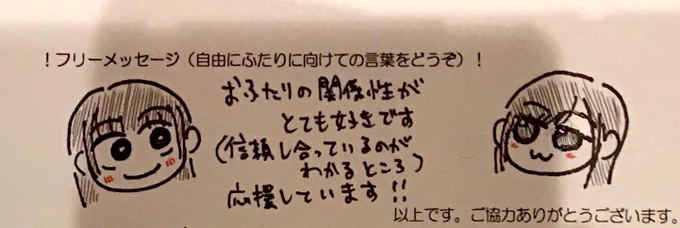 ！フリーメッセージ（自由にふたりに向けての言葉をどうぞ）！
おふたりの関係性が
とても好きです
（信頼し合っているのが
わかるところ）
応援しています！！
以上です。ご協力ありがとうございます。